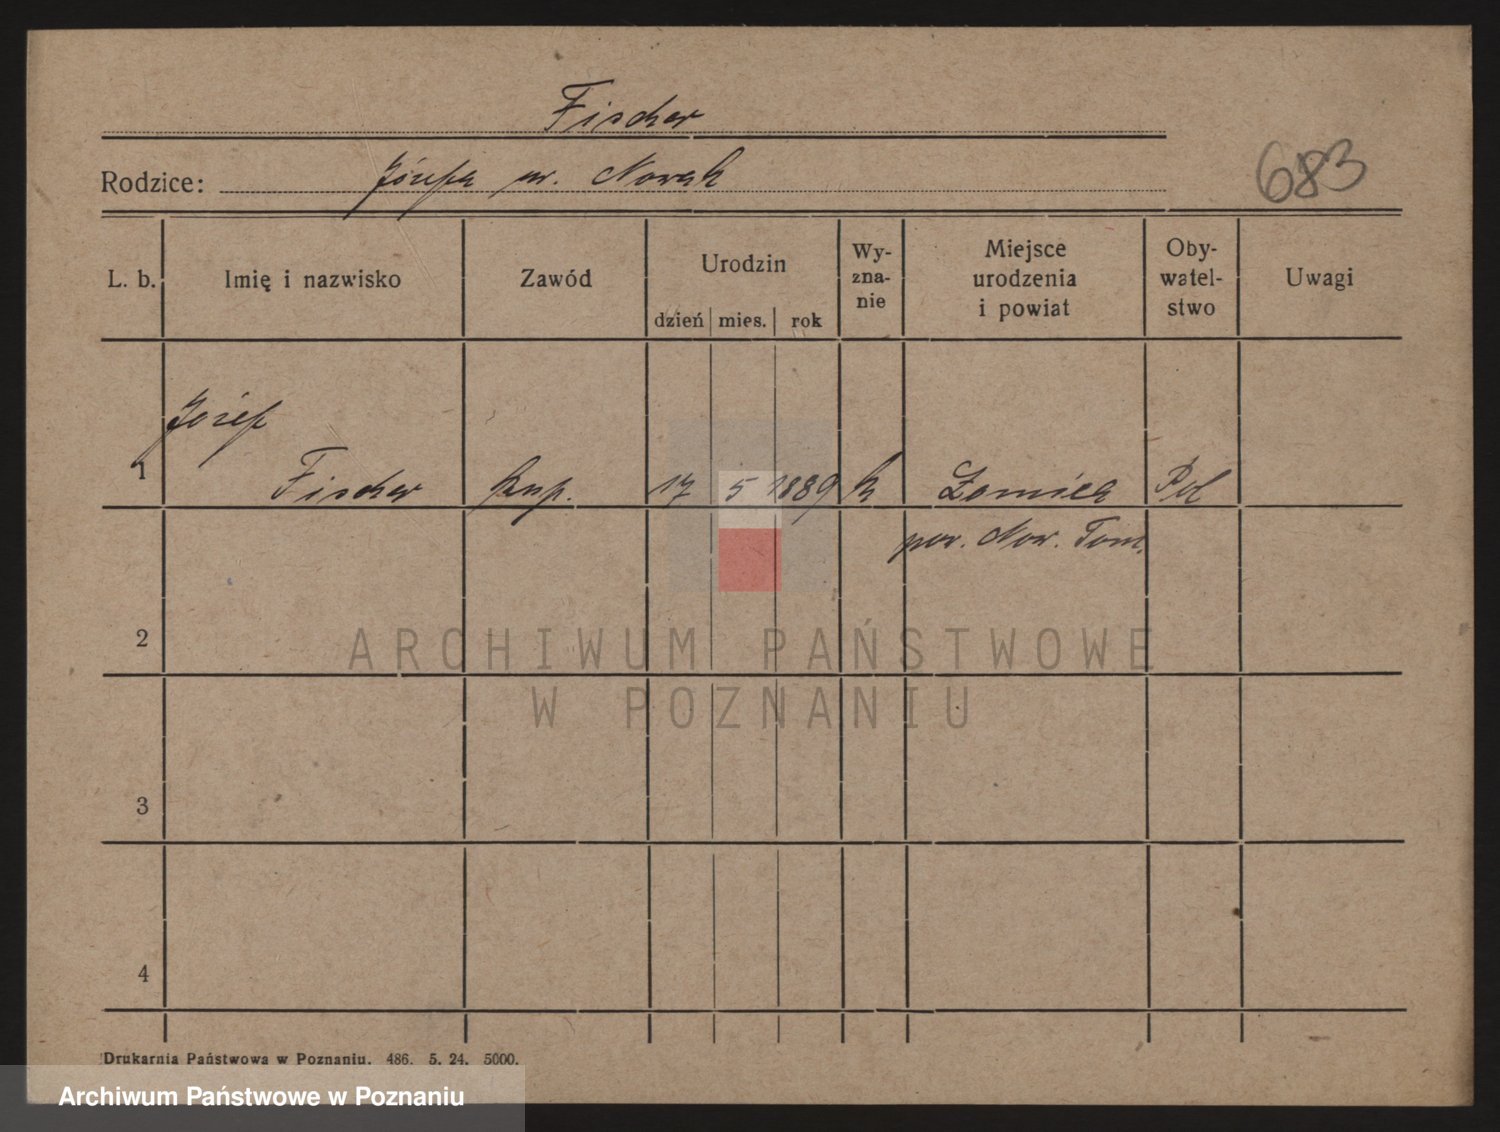 Fischer
Rodzice: Józefa ur. Nowak
683
L. b. Imię i nazwisko Zawód Urodzin dzień mies. rok Wy-zna-nie Miejsce urodzenia i powiat Oby-watel-stwo Uwagi
Józef
1 Fischer kup. 17 5 1889 k Łomnica Pol
pow. Now. Tom.
2
ARCHIWUM PAŃSTWOWE
W POZNANIU
3
4
Drukarnia Państwowa w Poznaniu. 486. 5. 24. 5000.
Archiwum Państwowe w Poznaniu